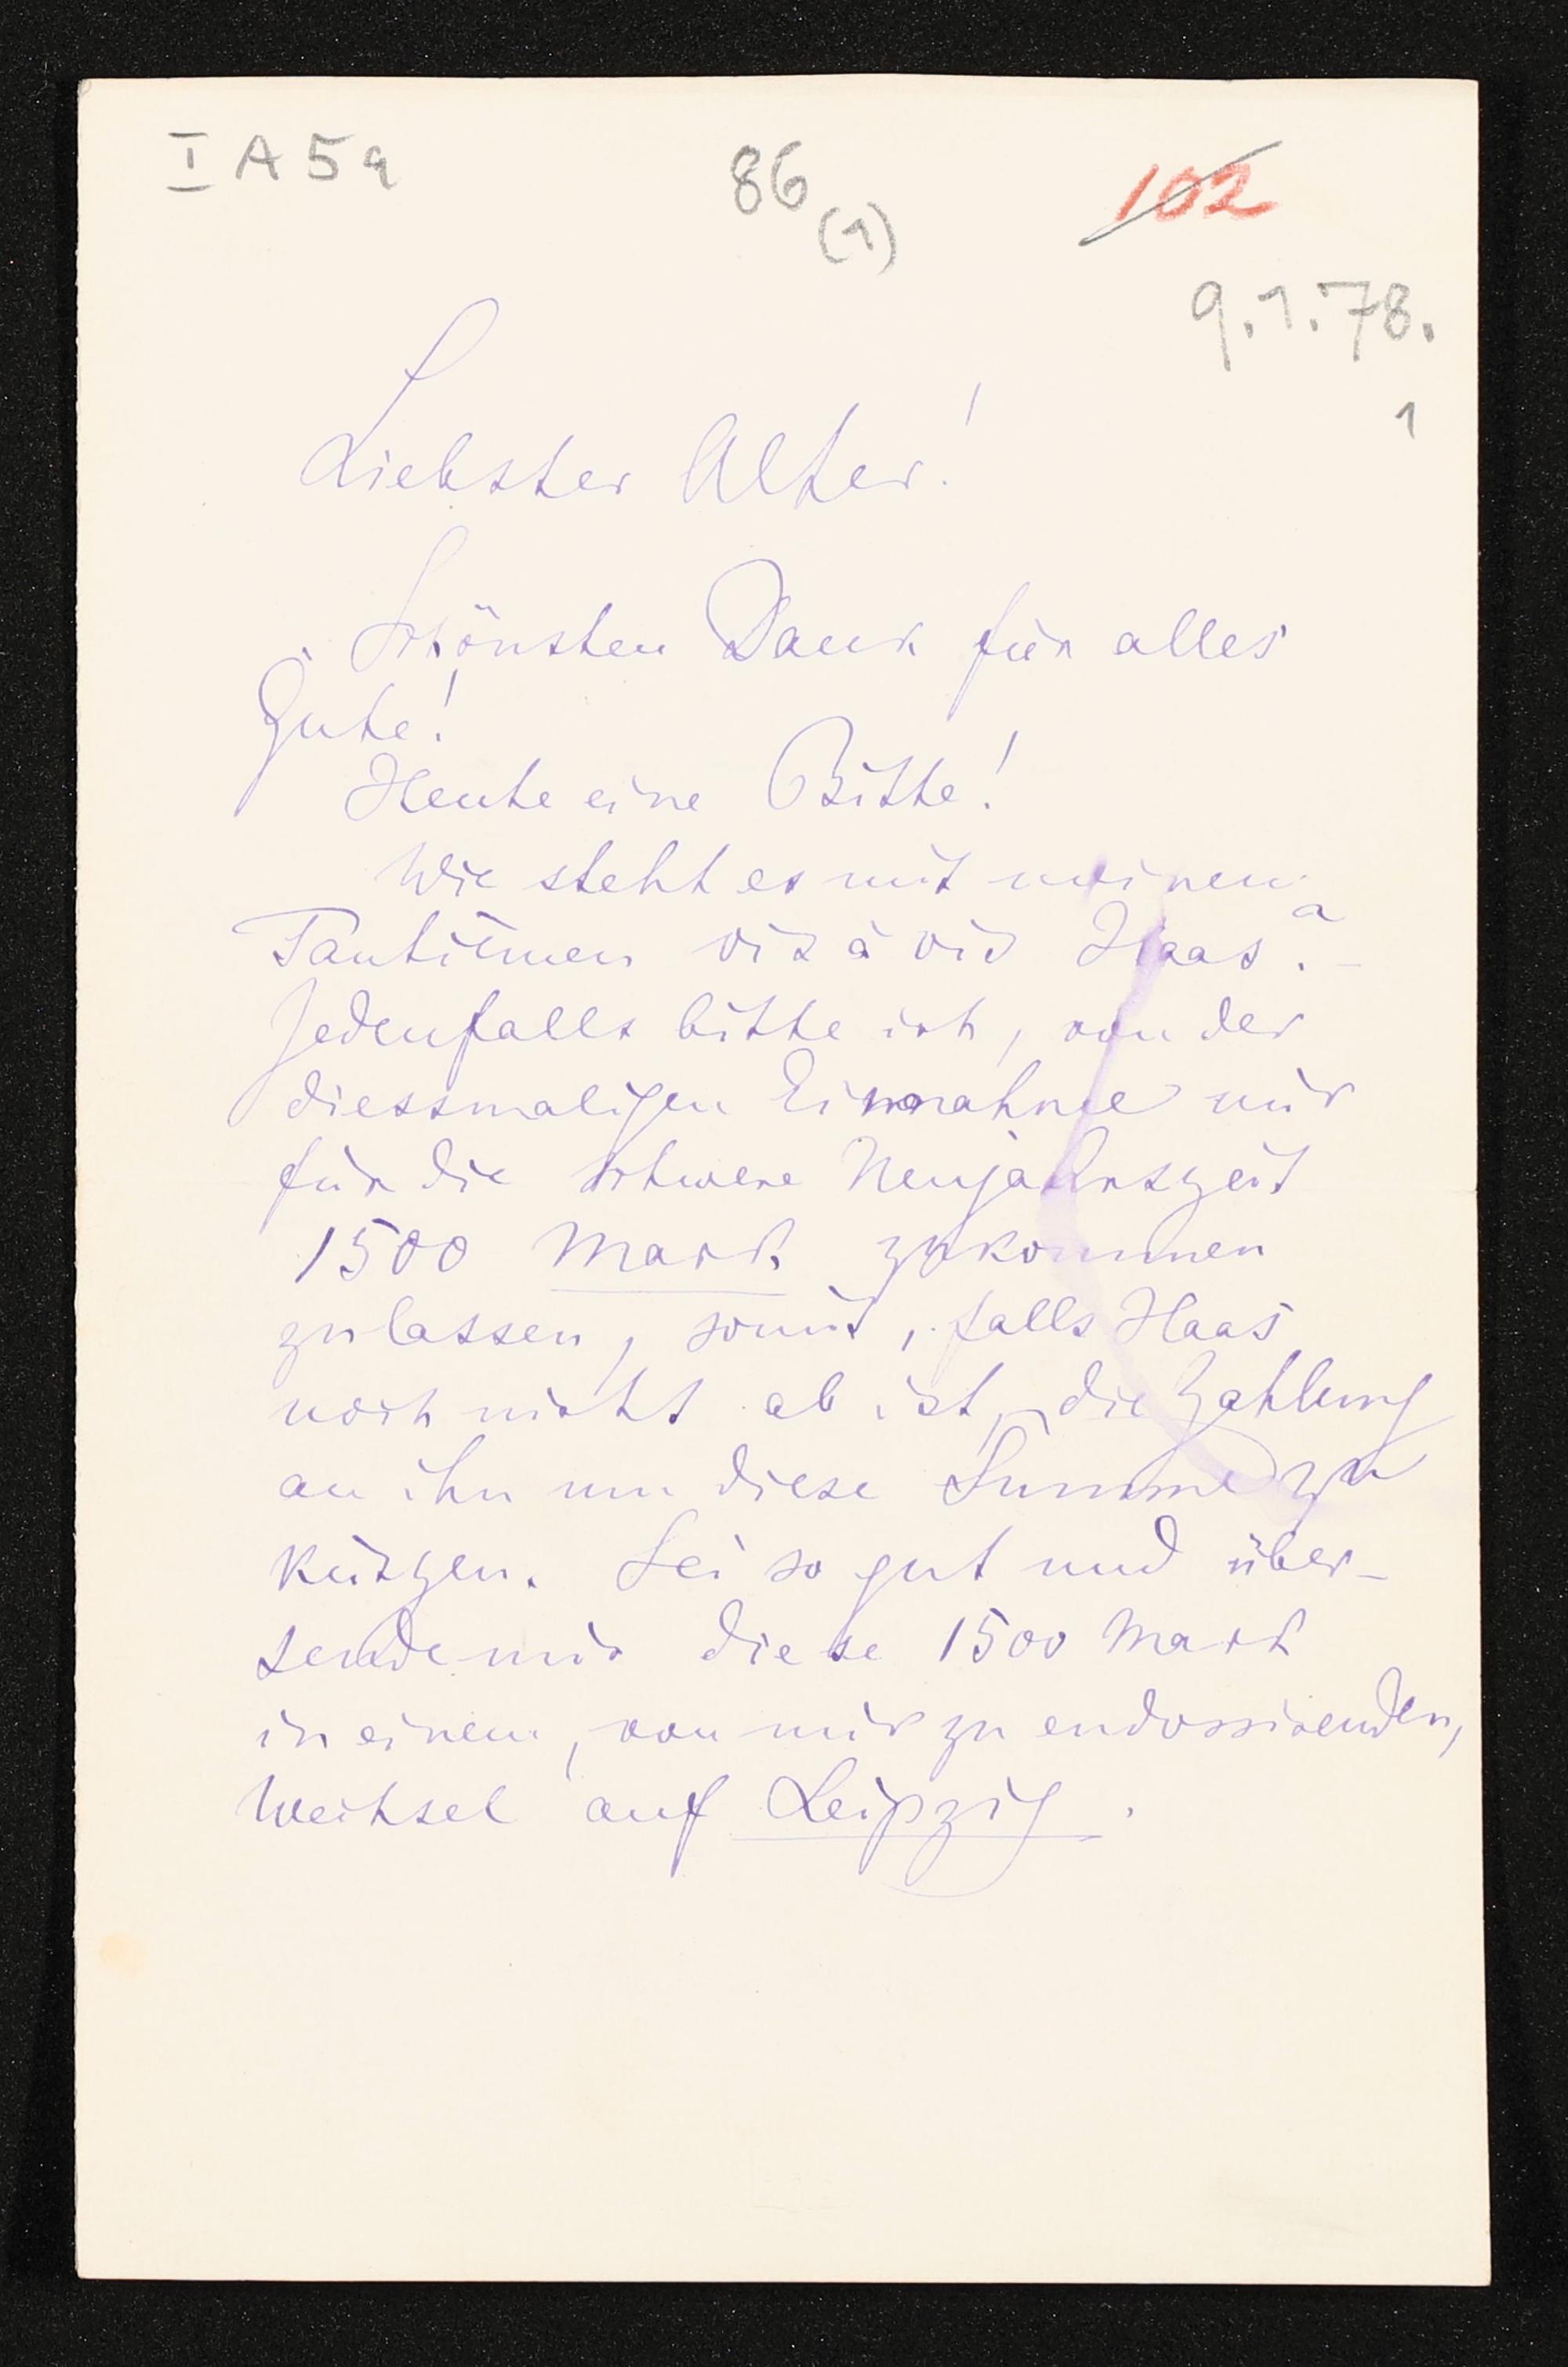 I A 5a
86
(1)
102
9.1.78.
1
Liebster Alter!
Schönsten Dank für alles
Gute!
Heute eine Bitte!
Wie steht es mit meinen
Tantièmen vis à vis Haas? –
Jedenfalls bitte ich, von der
diessmaligen Einnahme mir
für die schwere Neujahrszeit
1500 Mark zukommen
zu lassen, somit, falls Haas
noch nicht ab ist, die Zahlung
an ihn um diese Summe zu
kürzen. Sei so gut und über-
sende mir diese 1500 Mark
in einem, von mir zu endossirenden,
Wechsel auf Leipzig.